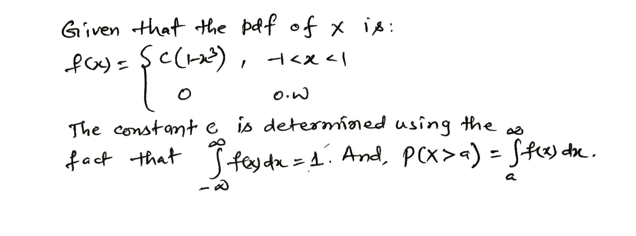 Given that the pdf of X is:
f(x) = { c(1-x³) , -1<x<1
0 o.w
The constant c is determined using the
fact that ∫_{-∞}^{∞} f(x) dx = 1. And, P(X>a) = ∫_a^∞ f(x) dx.